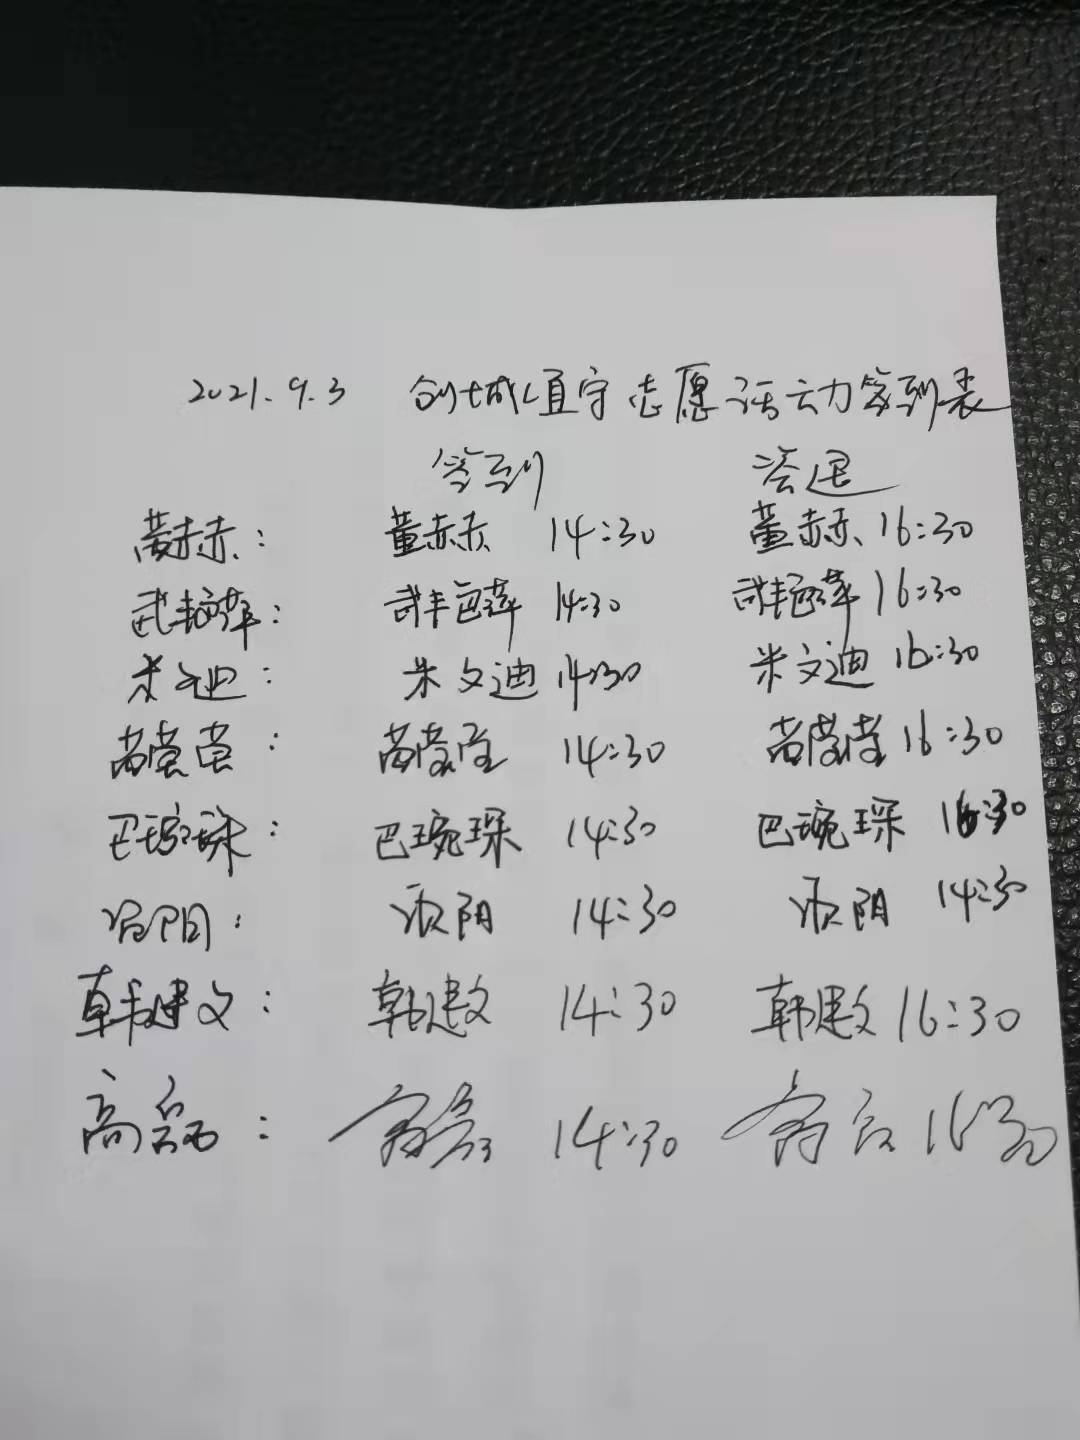 2021.9.3 创城值守志愿活动签到表
签到 签退
董赤赤： 董赤赤 14:30 董赤赤 16:30
武艳萍： 武艳萍 14:30 武艳萍 16:30
米文迪： 米文迪 14:30 米文迪 16:30
苗莹莹： 苗莹莹 14:30 苗莹莹 16:30
巴琬琛： 巴琬琛 14:30 巴琬琛 16:30
阴： 阴 14:30 阴 14:30
韩建文： 韩建文 14:30 韩建文 16:30
高磊： 高磊 14:30 高磊 16:30